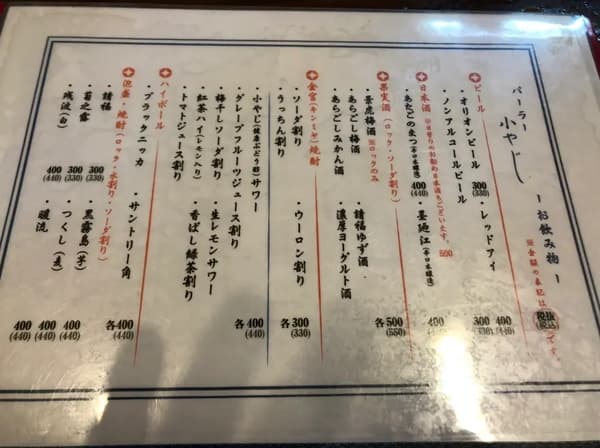 パーラー 小やじ
ー お飲み物 ー
※金額の表記は 税抜 (税込) です。
ビール
・オリオンビール 300 (330)
・レッドアイ 400 (440)
・ノンアルコールビール 300
日本酒 ※日替りのお勧め日本酒もございます。 500
・あたごのまつ(辛口本醸造) 400 (440)
・墨廼江(辛口本醸造) 400 (440)
果実酒(ロック・ソーダ割り) 各500 (550)
・景虎梅酒 ※ロックのみ
・請福ゆず酒
・あらごし梅酒
・濃厚ヨーグルト酒
・あらごしみかん酒
金宮(キンミヤ)焼酎
・ソーダ割り
・ウーロン割り
・うっちん割り
各300 (330)
・小やじ(健康ぶどう酢)サワー
・グレープフルーツジュース割り
・梅干しソーダ割り
・生レモンサワー
・紅茶ハイ(レモン入り)
・香ばし緑茶割り
・トマトジュース割り
各400 (440)
ハイボール
・ブラックニッカ
・サントリー角
各400 (440)
泡盛・焼酎(ロック・水割り・ソーダ割り)
・請福 300 (330)
・黒霧島(芋) 400 (440)
・菊之露 300 (330)
・つくし(麦) 400 (440)
・残波(白) 400 (440)
・暖流 400 (440)